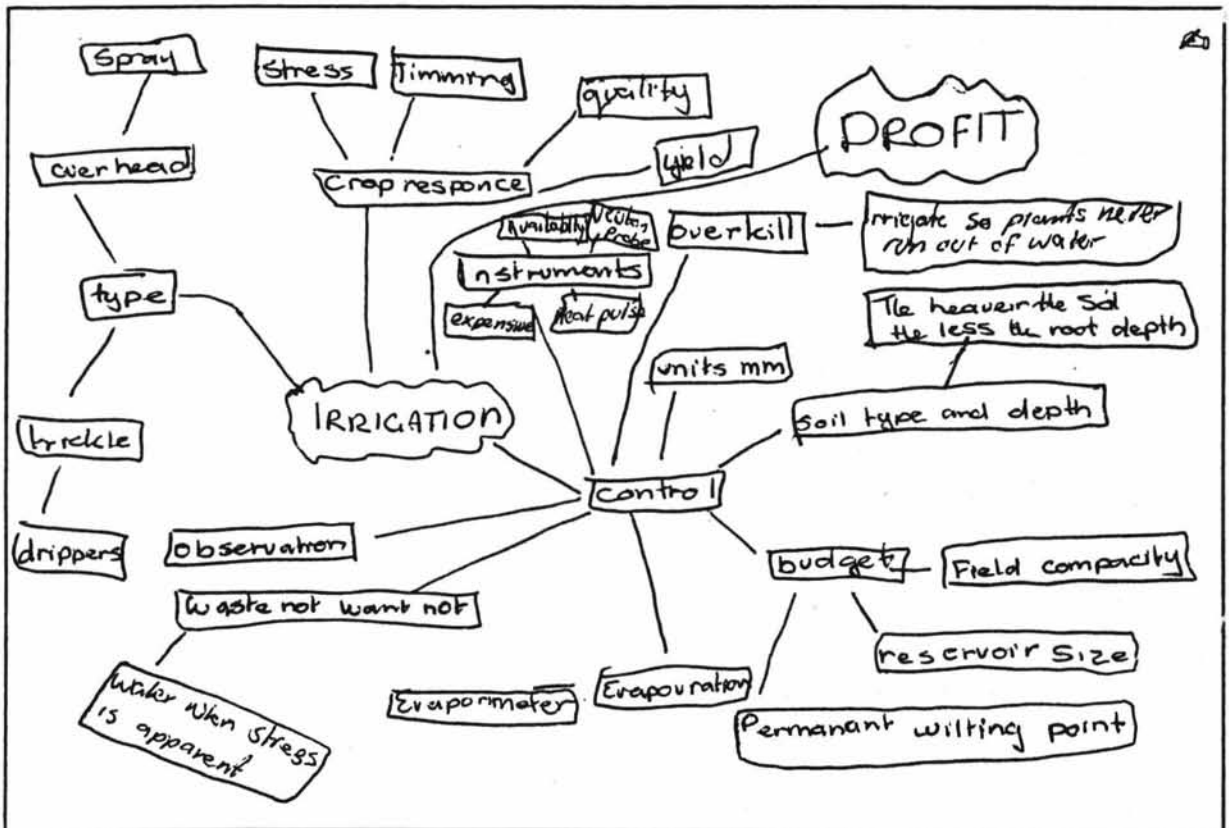 Spray
Stress
Timming
quality
PROFIT
overhead
yield
Crop responce
Availablity
Neutron
Probe
overkill
Irrigate so plants never
run out of water
Instruments
type
expensive
Heat pulse
The heavier the soil
the less the root depth
units mm
IRRIGATION
Soil type and depth
trickle
control
drippers
observation
budget
Field compacity
Waste not want not
reservoir Size
Water when stress
is apparent
Evaporimeter
Evapouration
Permanant wilting point